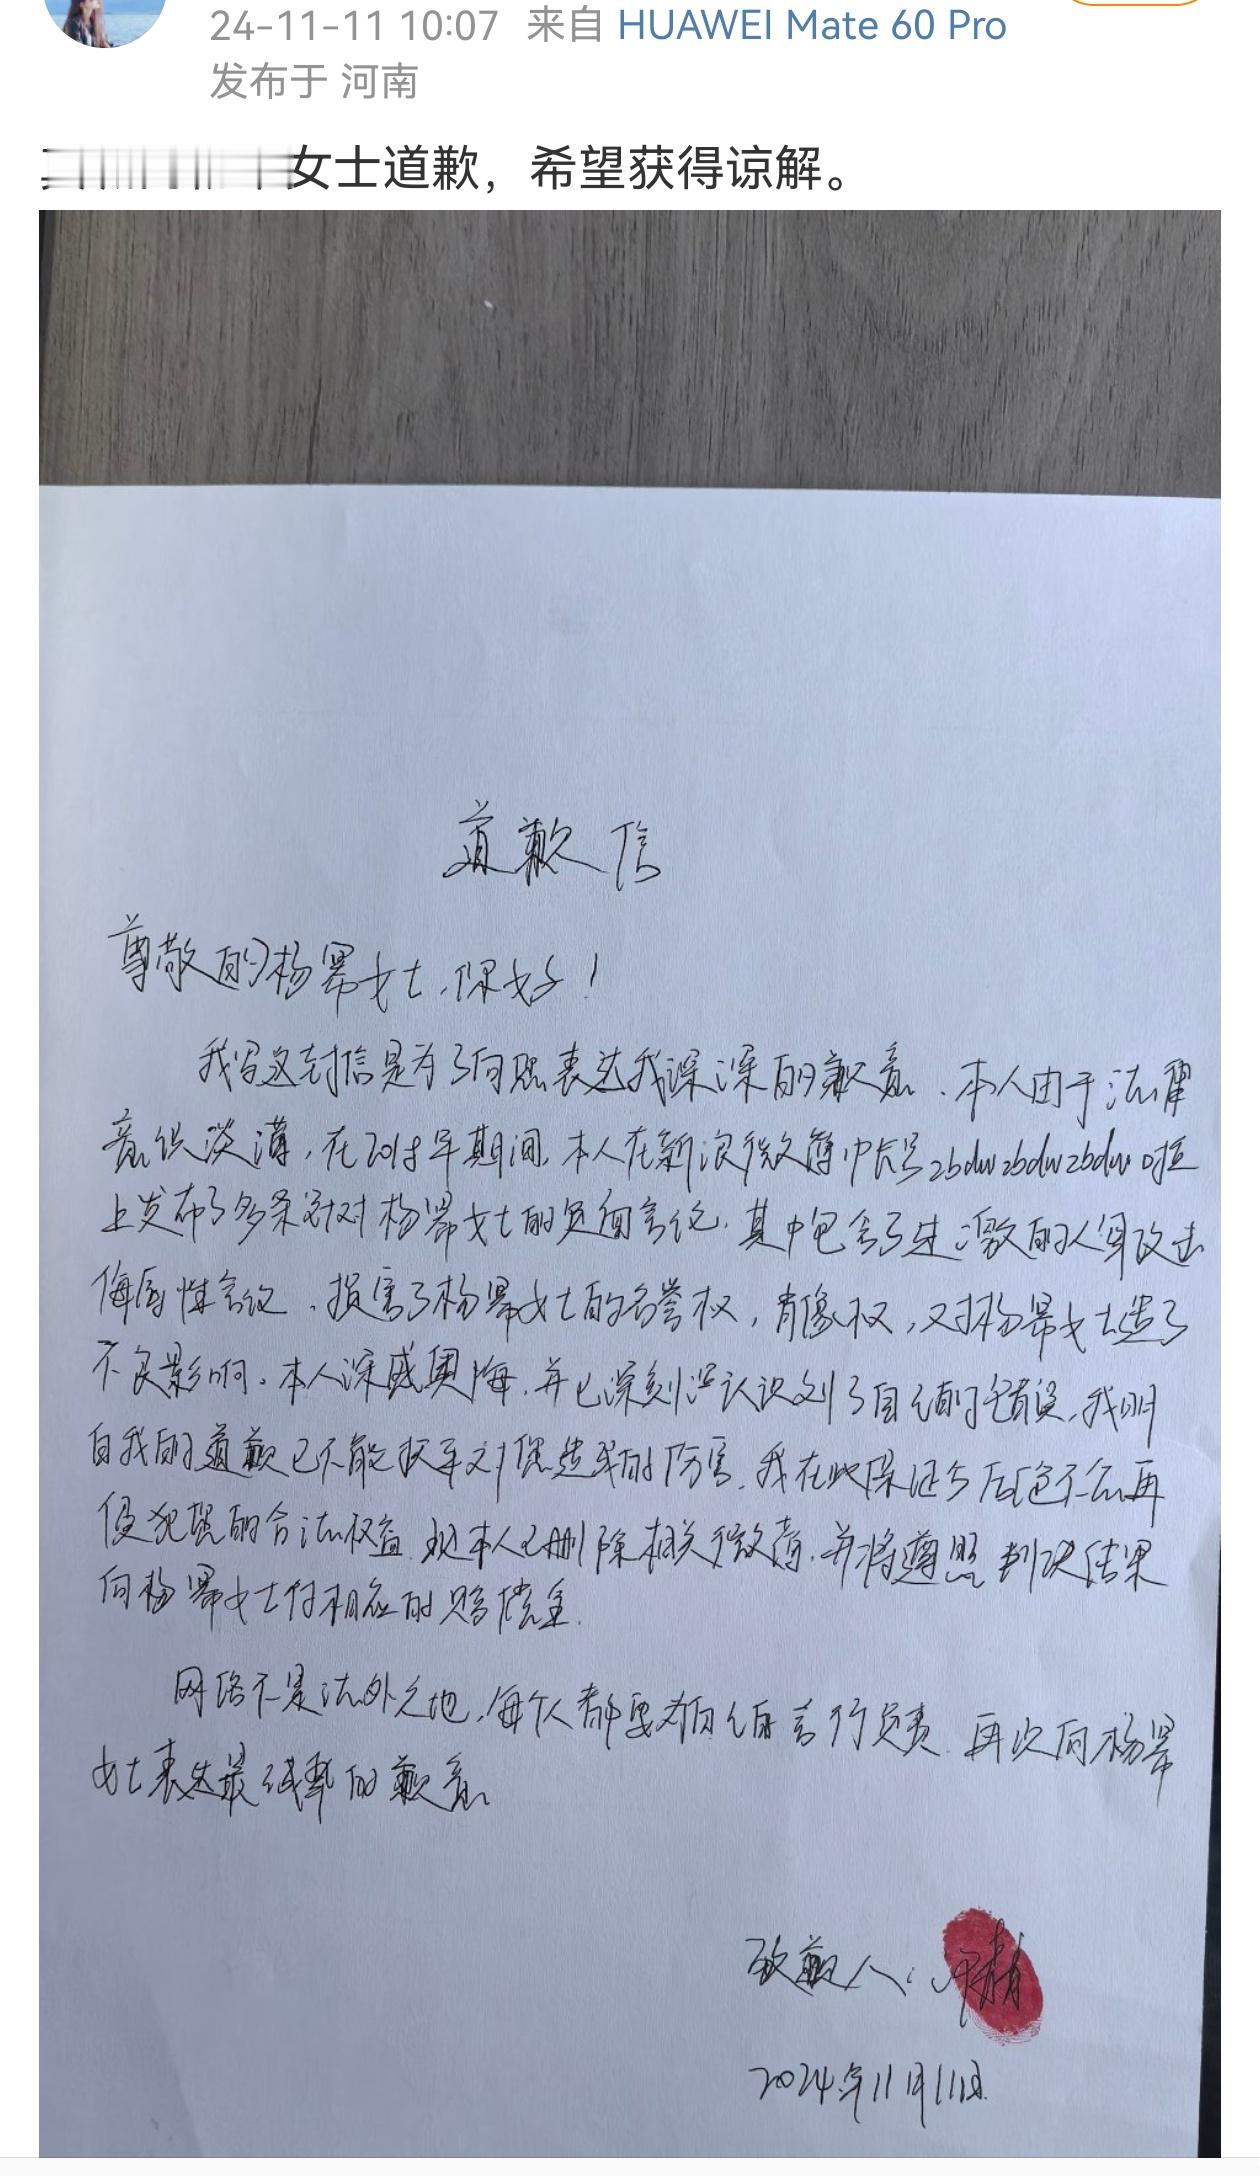 24-11-11 10:07 来自 HUAWEI Mate 60 Pro
发布于 河南
女士道歉，希望获得谅解。
道歉信
尊敬的杨幂女士，你好！
我写这封信是为了向您表达我深深的歉意，本人由于法律
意识淡薄，在年期间，本人在新浪微博中账号zbdwzbdwzbdw
上发布了多条针对杨幂女士的负面言论，其中包含了过激的人身攻击
侮辱性言论，损害了杨幂女士的名誉权，肖像权，对杨幂女士造了
不良影响。本人深感悔，并已深刻认识到了自己的错误，我明
白我的道歉已不能对您造成的厉害，我在此保证今后不会再
侵犯您的合法权益，现本人已删除相关微博，并将遵照判决结果
向杨幂女士付相应的赔偿金。
网络不是法外之地，每个人都要对自己的言行负责，再次向杨幂
女士表达最诚挚的歉意。
致歉人：
2024年11月11日